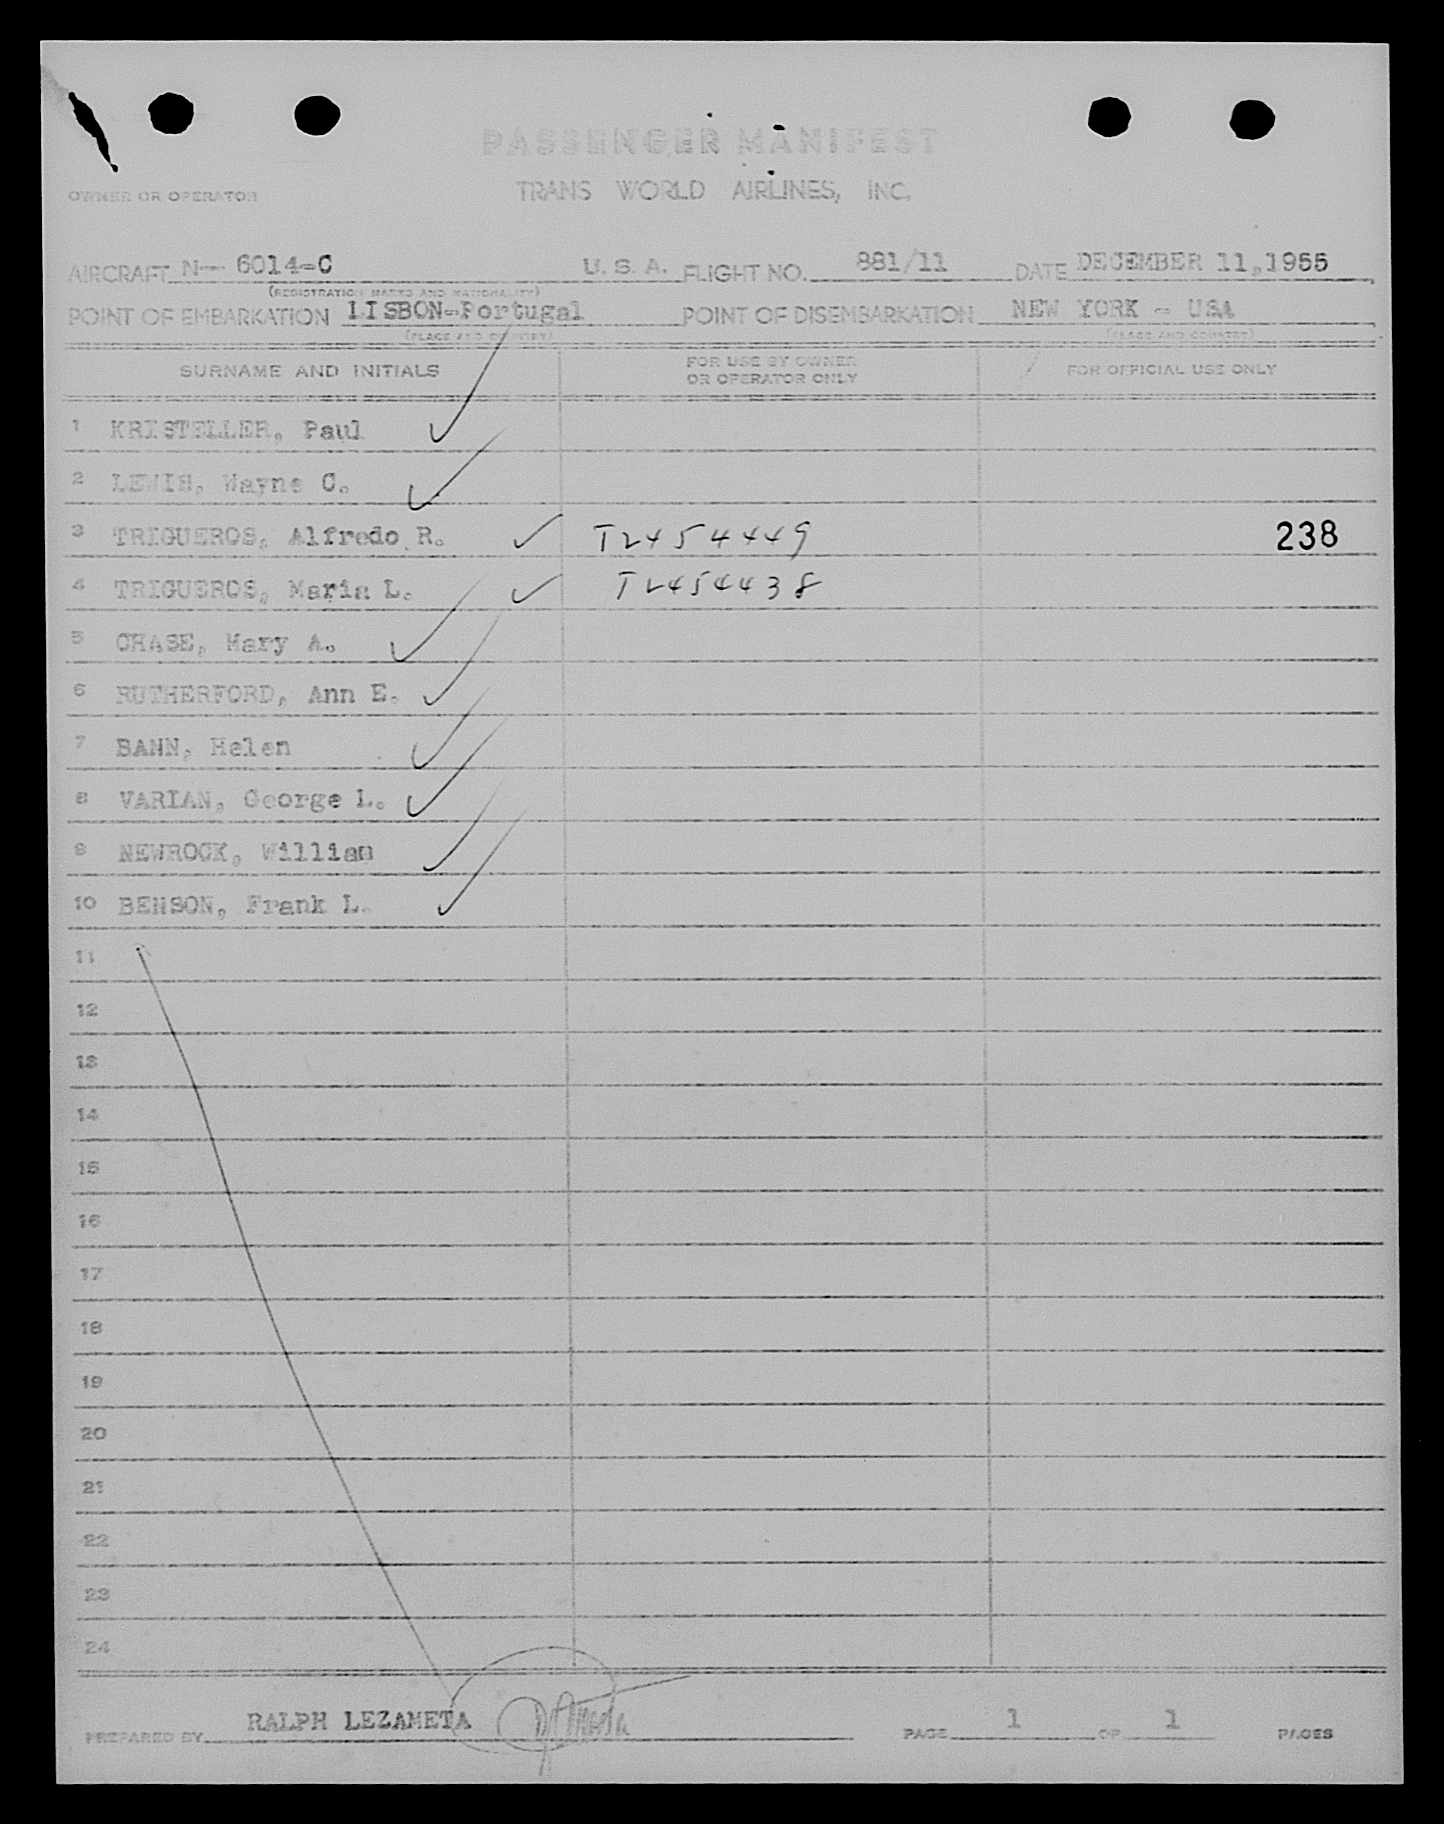 PASSENGER MANIFEST
OWNER OR OPERATOR TRANS WORLD AIRLINES, INC.
AIRCRAFT N-- 6014-C U. S. A. FLIGHT NO. 881/11 DATE DECEMBER 11,1955
(REGISTRATION MARKS AND NATIONALITY)
POINT OF EMBARKATION LISBON-Portugal POINT OF DISEMBARKATION NEW YORK - USA
(PLACE AND COUNTRY) (PLACE AND COUNTRY)
SURNAME AND INITIALS FOR USE BY OWNER OR OPERATOR ONLY FOR OFFICIAL USE ONLY
1 KRISTELLER, Paul
2 LEWIS, Wayne C.
3 TRIGUEROS, Alfredo R. T2454449 238
4 TRIGUEROS, Maria L. T2454438
5 CHASE, Mary A.
6 RUTHERFORD, Ann E.
7 BANN, Helen
8 VARIAN, George L.
9 NEWROCK, William
10 BENSON, Frank L.
11
12
13
14
15
16
17
18
19
20
21
22
23
24
PREPARED BY RALPH LEZAMETA PAGE 1 OF 1 PAGES